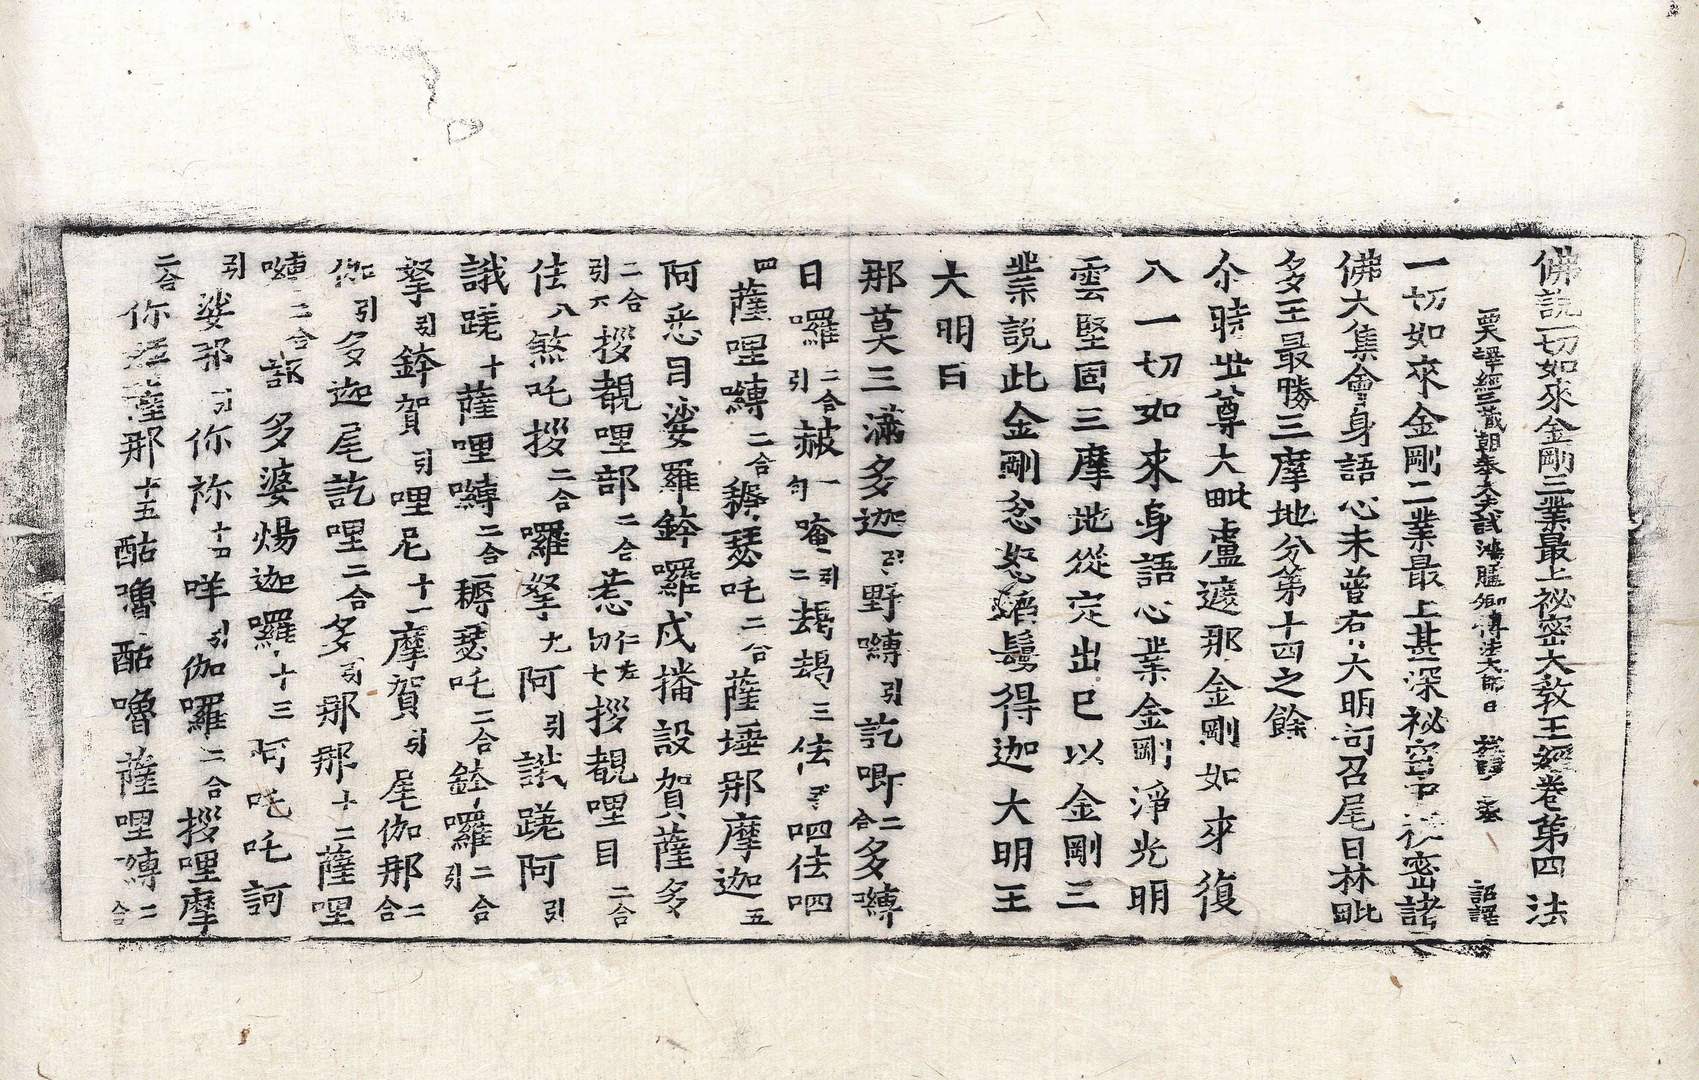 佛說一切如來金剛三業最上祕密大教王經卷第四 法
西天譯經三藏朝奉大夫試鴻臚卿傳法大師臣 施護 奉 詔譯
一切如來金剛三業最上甚深祕密中祕密諸
佛大集會身語心未曾有大明句召尾日林毗
多王最勝三摩地分第十四之餘
尒時世尊大毗盧遮那金剛如來復
入一切如來身語心業金剛淨光明
雲堅固三摩地從定出已以金剛三
業說此金剛忿怒 鬘得迦大明王
大明曰
那莫三滿多迦引野嚩引訖唧二合多嚩
日囉二合引赧一句唵引二朅朅三佉引呬佉呬
四薩哩嚩二合耨瑟吒二合薩埵那摩迦五
阿悉目娑羅鉢囉戍播設賀薩多
二合引六拶覩哩部二合惹仁左切七拶覩哩目二合
佉八煞吒拶二合囉拏九阿引誐蹉阿引
誐蹉十薩哩嚩二合耨瑟吒二合鉢囉二合引
拏引鉢賀引哩尼十一摩賀引尾伽那二合
伽引多迦尾訖哩二合多引那那十二薩哩
嚩二合部多婆煬迦囉十三阿吒吒訶
引娑那引你祢十四咩引伽囉二合拶哩摩
二合你嚩薩那十五酤嚕酤嚕薩哩嚩二合